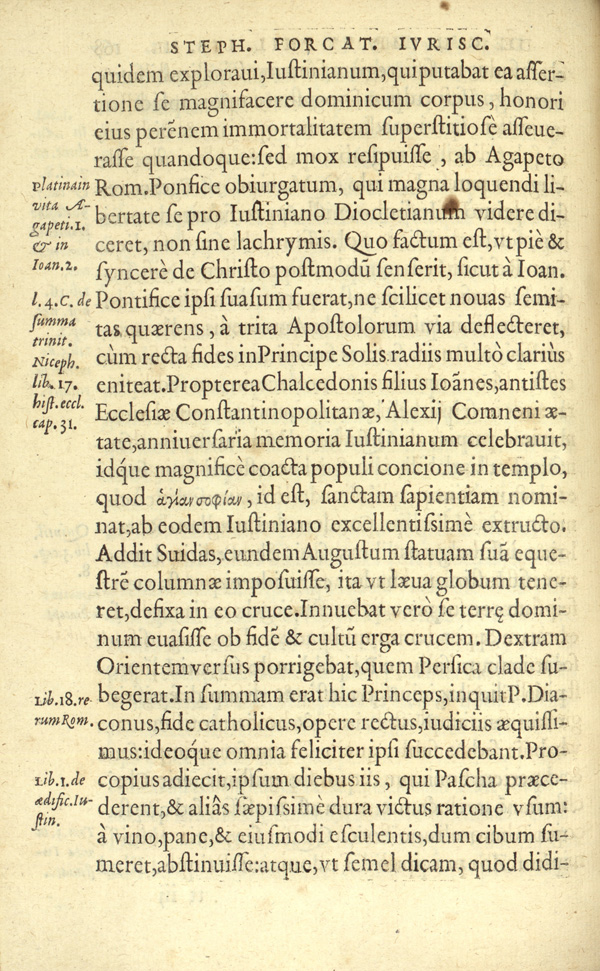 STEPH. FORCAT. IVRISC.
quidem exploraui,Iustinianum,qui putabat ea asser-
tione se magnifacere dominicum corpus, honori
eius perẽnem immortalitatem superstitiosè asseue-
rasse quandoque:sed mox resipuisse, ab Agapeto
Rom.Ponfice obiurgatum, qui magna loquendi li-
bertate se pro Iustiniano Diocletianum videre di-
ceret, non sine lachrymis. Quo factum est,vt piè &
syncerè de Christo postmodũ senserit, sicut à Ioan.
Pontifice ipsi suasum fuerat,ne scilicet nouas semi-
tas quærens, à trita Apostolorum via deflecteret,
cùm recta fides in Principe Solis radiis multò clariùs
eniteat.Propterea Chalcedonis filius Ioãnes,antistes
Ecclesiæ Constantinopolitanæ, Alexij Comneni æ-
tate,anniuersaria memoria Iustinianum celebrauit,
idq́ue magnificè coacta populi concione in templo,
quod ἁγίαν σοφίαν, id est, sanctam sapientiam nomi-
nat,ab eodem Iustiniano excellentissimè extructo.
Addit Suidas,eundem Augustum statuam suã eque-
strẽ columnæ imposuisse, ita vt læua globum tene-
ret,defixa in eo cruce.Innuebat verò se terrę domi-
num euasisse ob fidẽ & cultũ erga crucem. Dextram
Orientem versus porrigebat,quem Persica clade su-
begerat.In summam erat hic Princeps,inquit P.Dia-
conus,fide catholicus,opere rectus,iudiciis æquissi-
mus:ideoque omnia feliciter ipsi succedebant.Pro-
copius adiecit,ipsum diebus iis, qui Pascha præce-
derent,& aliâs sæpissimè dura victus ratione vsum:
à vino,pane,& eiusmodi esculentis,dum cibum su-
meret,abstinuisse:atque,vt semel dicam, quod didi-
Platina in
vita A-
gapeti.1.
& in
Ioan.2.
l. 4. C. de
summa
trinit.
Niceph.
lib. 17.
hist. eccl.
cap. 31.
Lib.18.re-
rum Rom.
Lib.1.de
ædific.Iu-
stin.